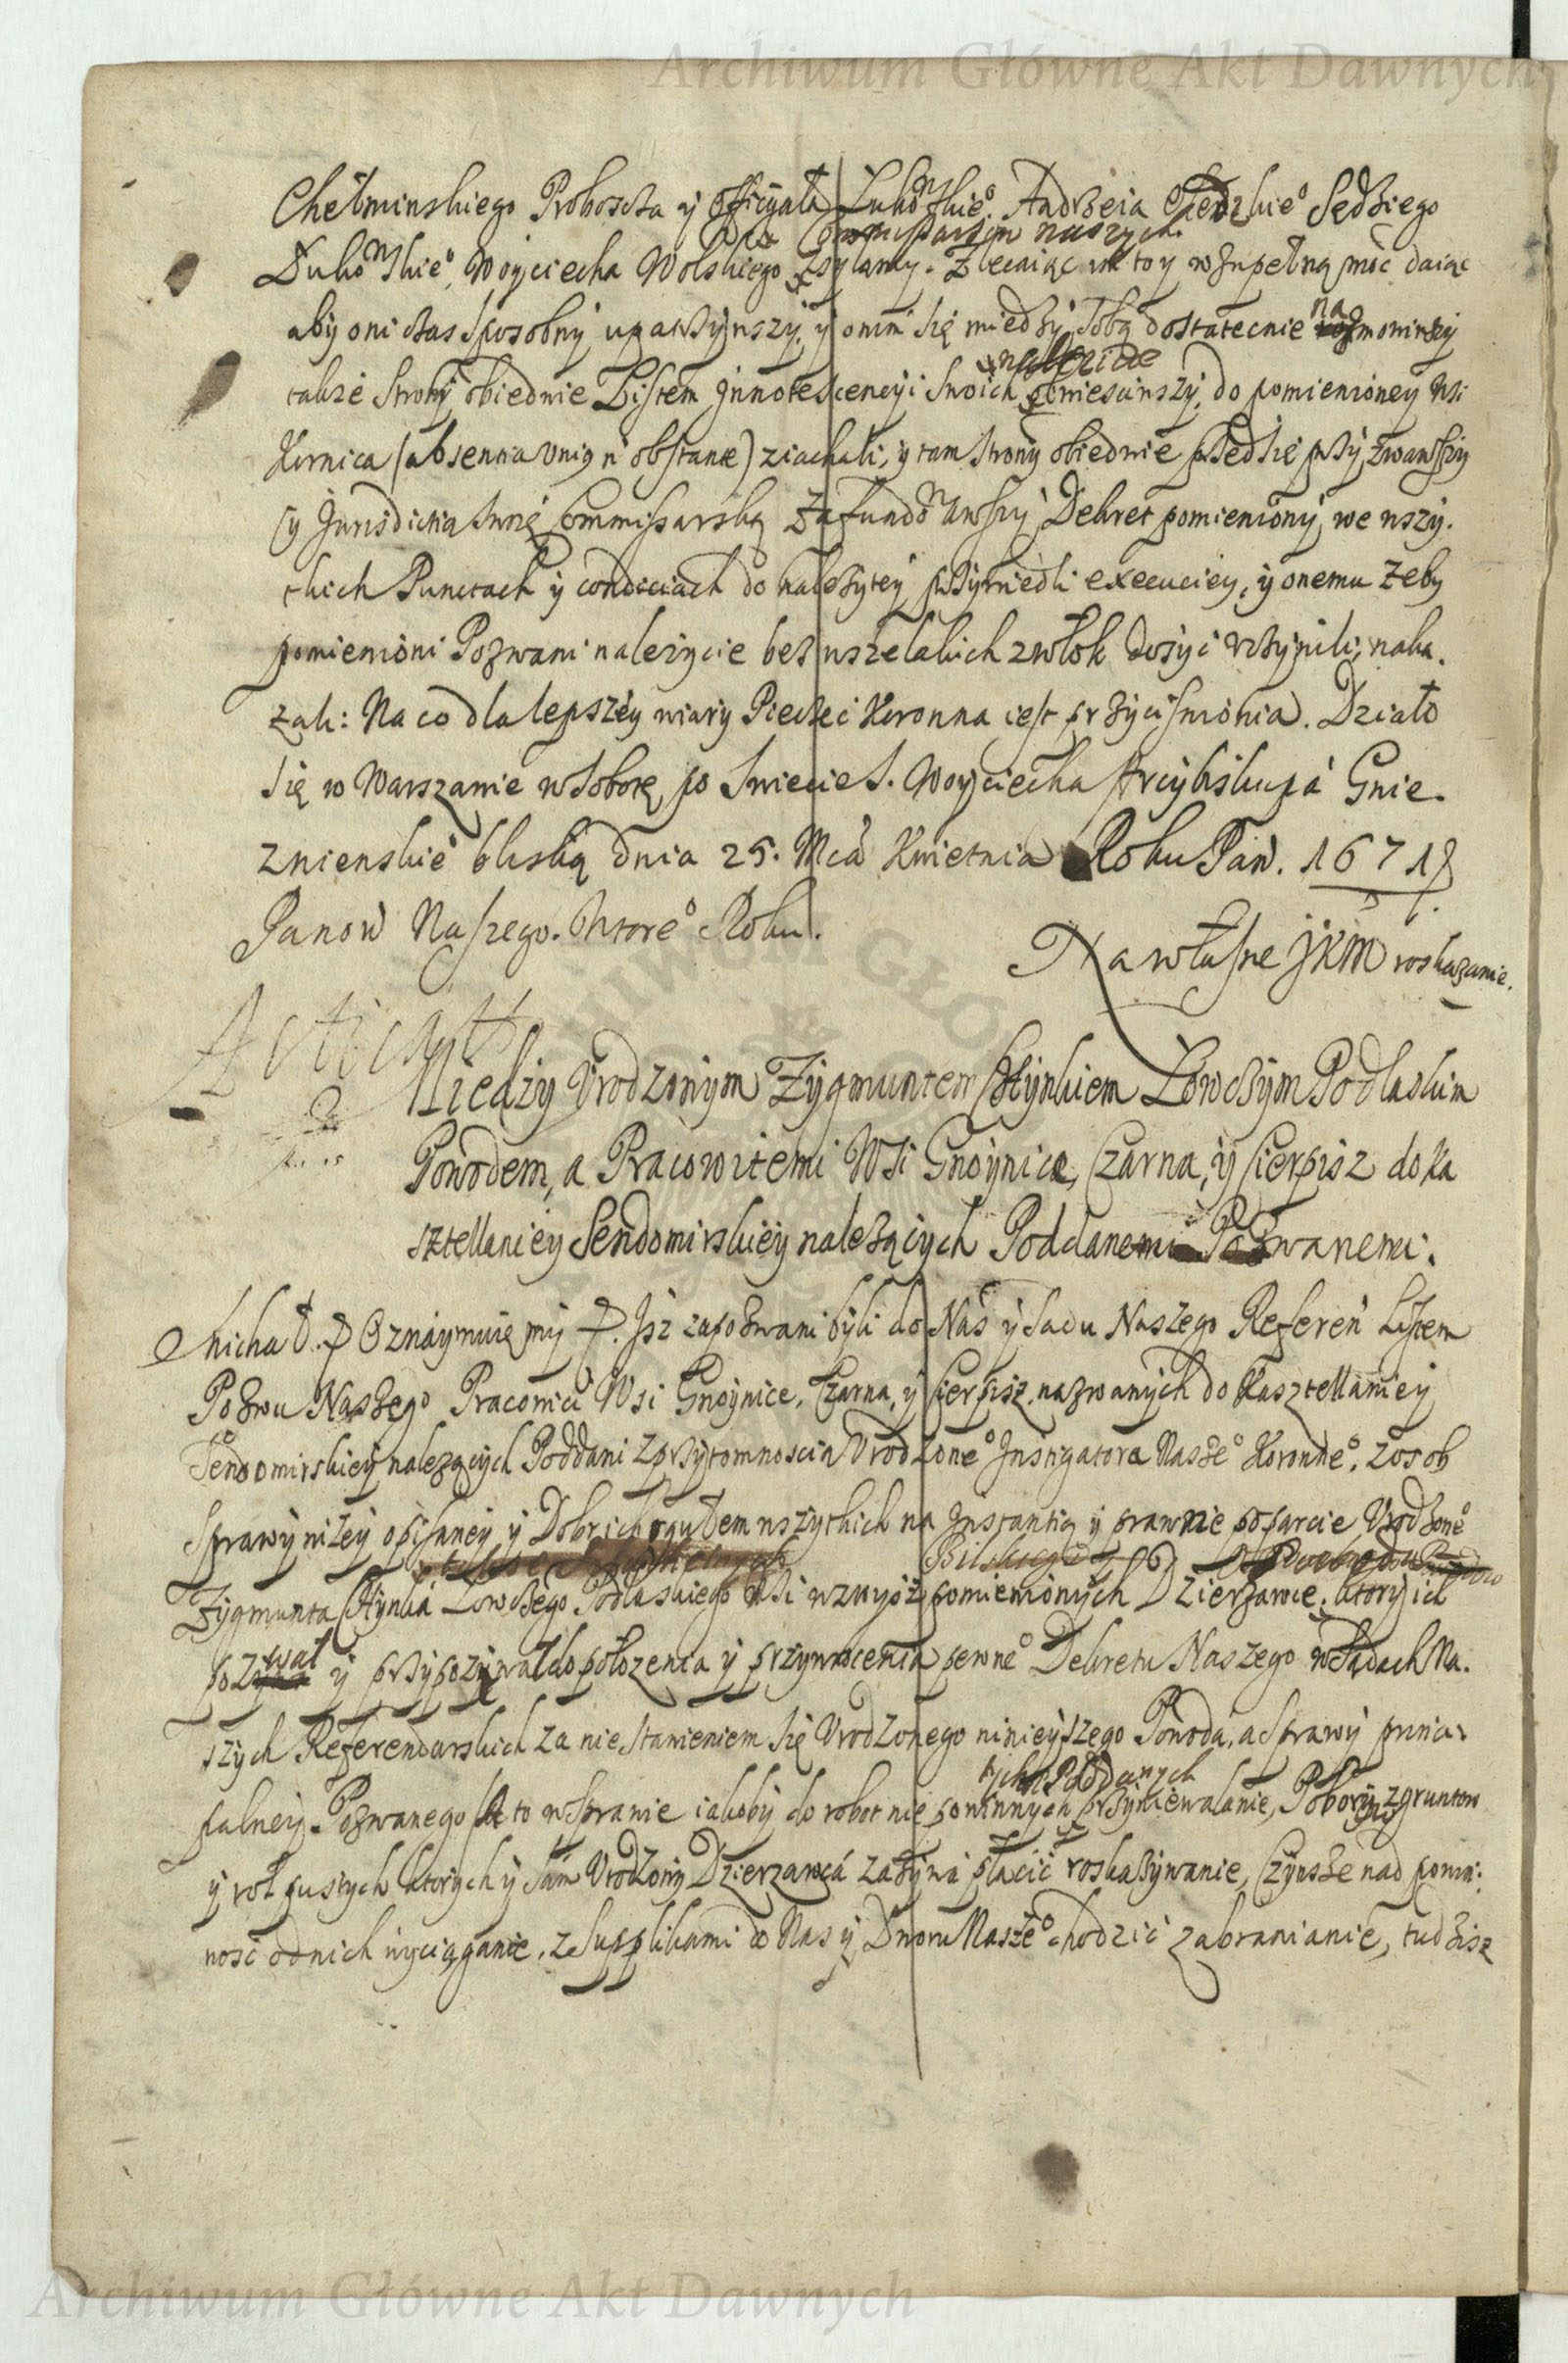 Archiwum Główne Akt Dawnych
Chełminskiego Proboszcza y Officyała Łukowskie⁰, Andrzeia Sędziego
Łukowskie⁰, Woyciecha Wolskiego Commissarzow naszych zsyłamy. Zlecaiąc im to y wzupełną moc daiąc
aby oni czas sposobny upatrzywszy, y onim się miedzy sobą dostatecznie namowiwszy
także strony obiedwie Listem Innotescencyi swoich obwiesciwszy, do pomienioney Wsi
Kornica (absentia unig n̄ obstante) ziachali, y tam strony obiedwie przed się przyzwawszy
y Jurisdictią swoię Commissarską zafundowawszy Dekret pomieniony we wszy-
tkich Punctach y conditiach do należytey przywiedli execuciey, y onemu żeby
pomienioni Pozwani należycie bez wszelakich zwłok dosyć vczynili, naka-
zali: Na co dla lepszey wiary Pieczęć Koronna iest przyciśniona. Działo
się w Warszawie w Sobotę po Swięcie S. Woyciecha Arcybiskupa Gnie-
znienskie⁰ bliską dnia 25. Mca Kwietnia Roku Pan. 1671
Panow̄ Naszego. Wtore⁰ Roku.
Na własne JKM roskazanie.
Miedzy Vrodzonym Zygmuntem Łowczym Podlaskim
Powodem, a Pracowitemi Wsi Gnoynice, Czarna, y Sierpisz do Ka
sztellaniey Sendomirskiey należących Poddanemi Pozwanemi.
Michał. Oznaymuię my. Jsz zapozwani byli do Nas y Sadu Naszego Referen̄ Listem
Pozwu Naszego Pracowici Wsi Gnoynice, Czarna, y Sierpisz nazwanych do Kasztellaniey
Sendomirskiey należących Poddani z przytomnoscia Vrodzone⁰ Instigatora Nasze⁰ Koronne⁰. Z osob
Sprawy niżey opisaney y Dobr ich ogułem wszytkich na Instantią y prawnie poparcie Vrodzone⁰
Zygmunta Łowczego Podlaskiego Wsi wzwyż pomienionych Dzierzawce, ktory ich
pozwał y przypozywał do położenia y przywrocenia pewne⁰ Dekretu Naszego w Sądach Na-
szych Referendarskich za niestanieniem się Vrodzonego ninieyszego Powoda, a sprawy princi-
palney Pozwanego to w sprawie iakoby do robot nie powinnych tych Poddanych przyniewalanie, Pobory z gruntow
y rol pustych ktorych y sam Vrodzony Dzierzawca zażywa płacić roskazywanie, Czynsze nad powin-
ność od nich wyciąganie, z Supplikami do Nas y Dworu Nasze⁰ chodzić zabranianie, tudzisz
Archiwum Główne Akt Dawnych